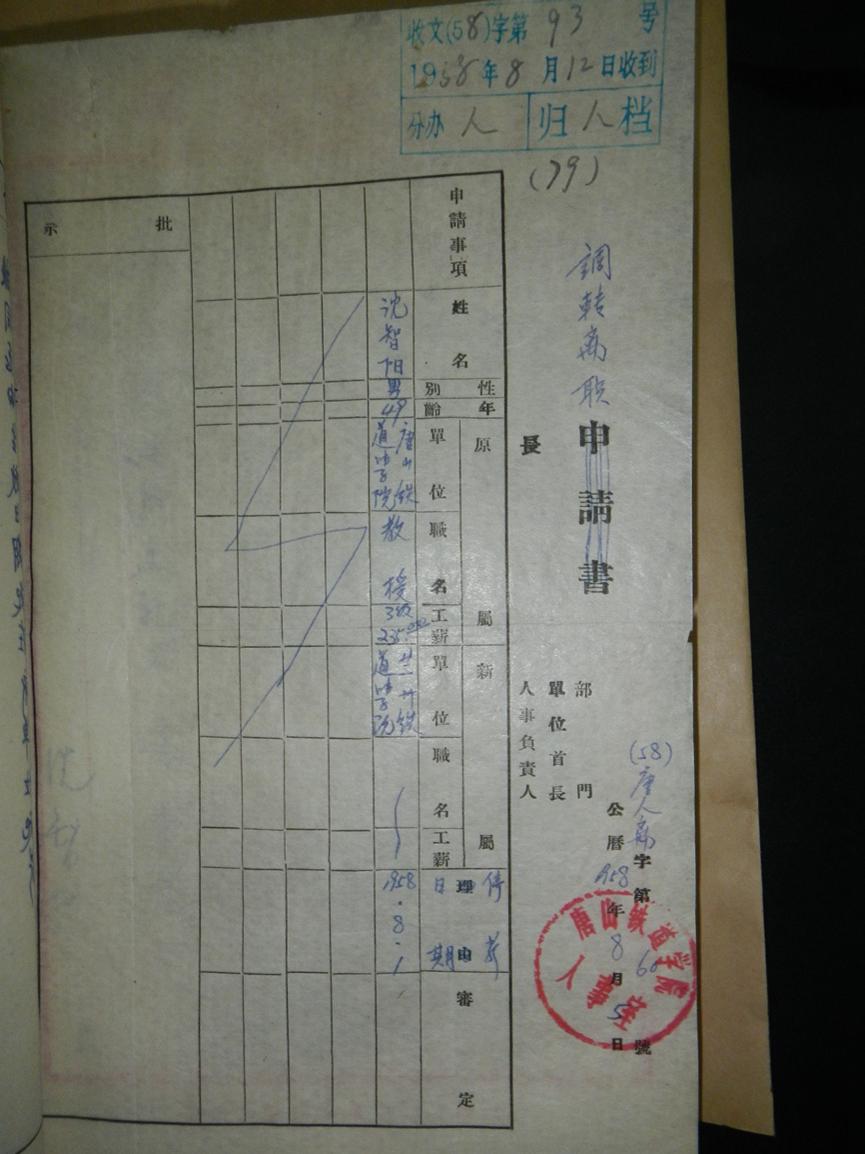 收文(58)字第93号
1958年8月12日收到
分办 人 归人档
(79)
調转离职
申請書
長
部門
單位首長
人事負責人
(58)唐人离字第60號
公曆1958年8月5日
唐山鉄道学院
人事室
申請事項
姓名
性別
年齡
原屬
單位
職名
工薪
新屬
單位
職名
工薪
理由
停薪日期
審定
沈智阳
男
49
唐山鉄道学院
教授
3級
235.00
兰州鉄道学院
1958.8.1
批示